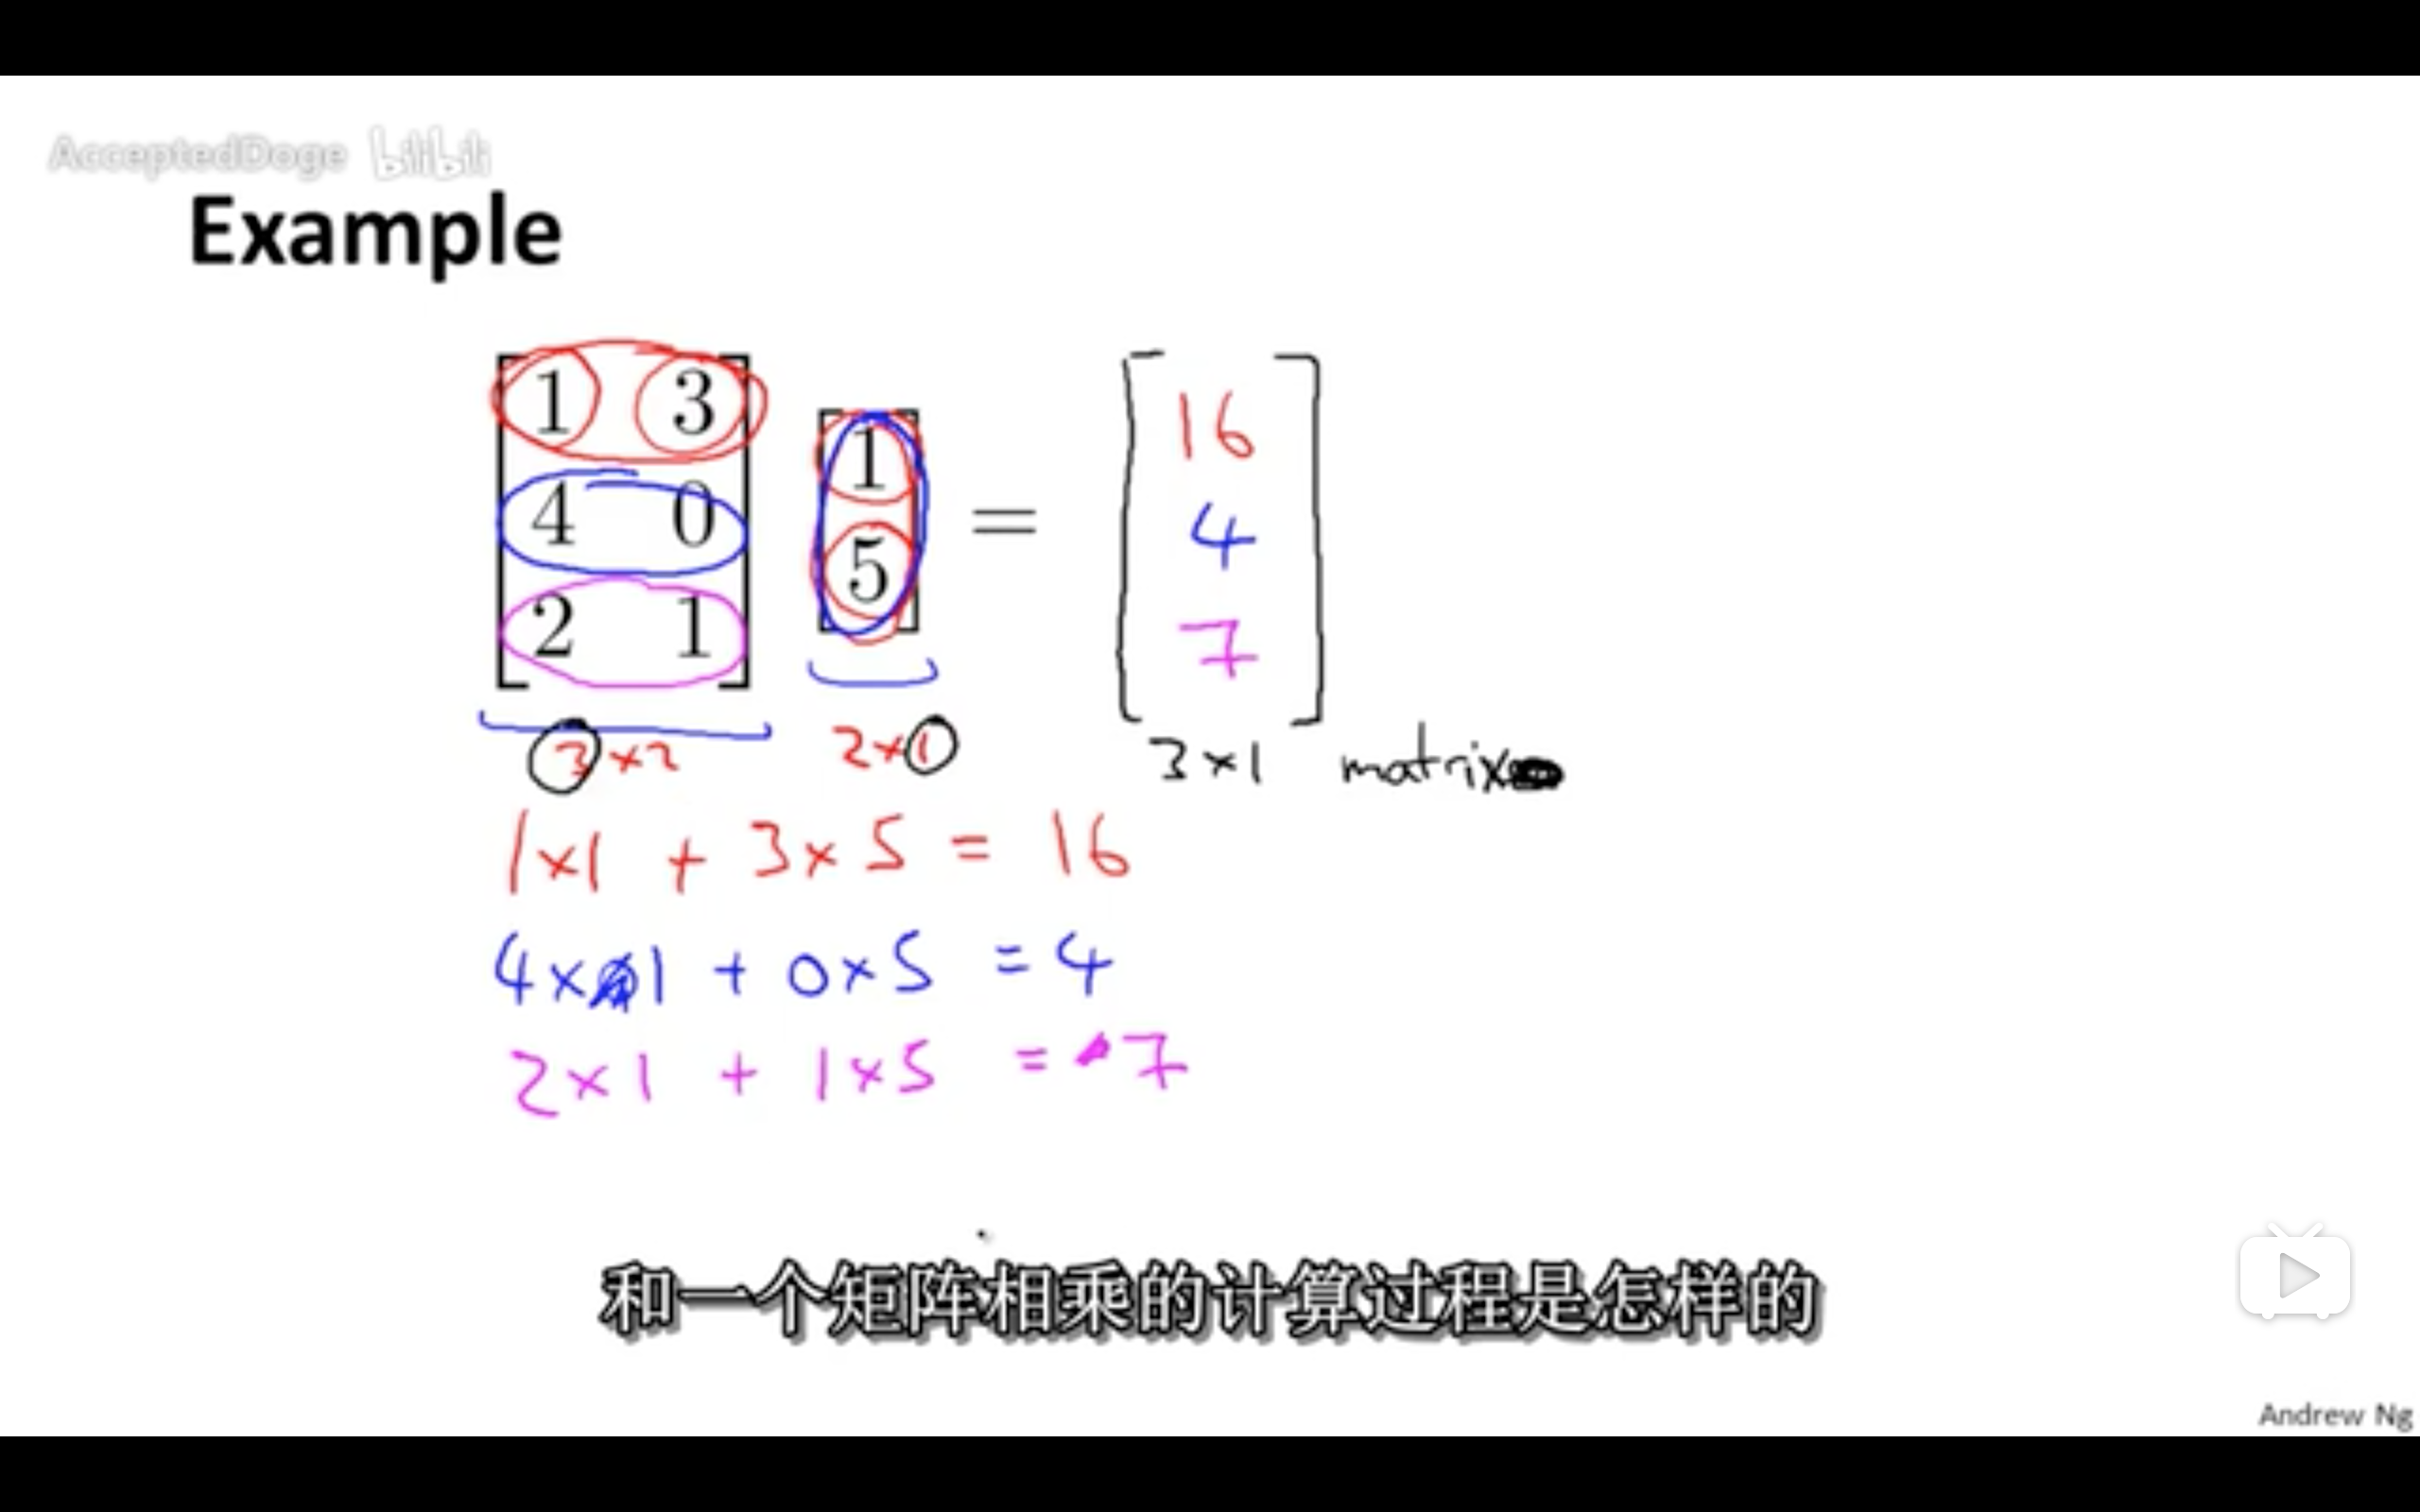 AcceptedDoge bilibili
Example
1 3
4 0
2 1
1
5
=
16
4
7
3×2
2×1
3×1 matrix
1×1 + 3×5 = 16
4×1 + 0×5 = 4
2×1 + 1×5 = 7
和一个矩阵相乘的计算过程是怎样的
Andrew Ng